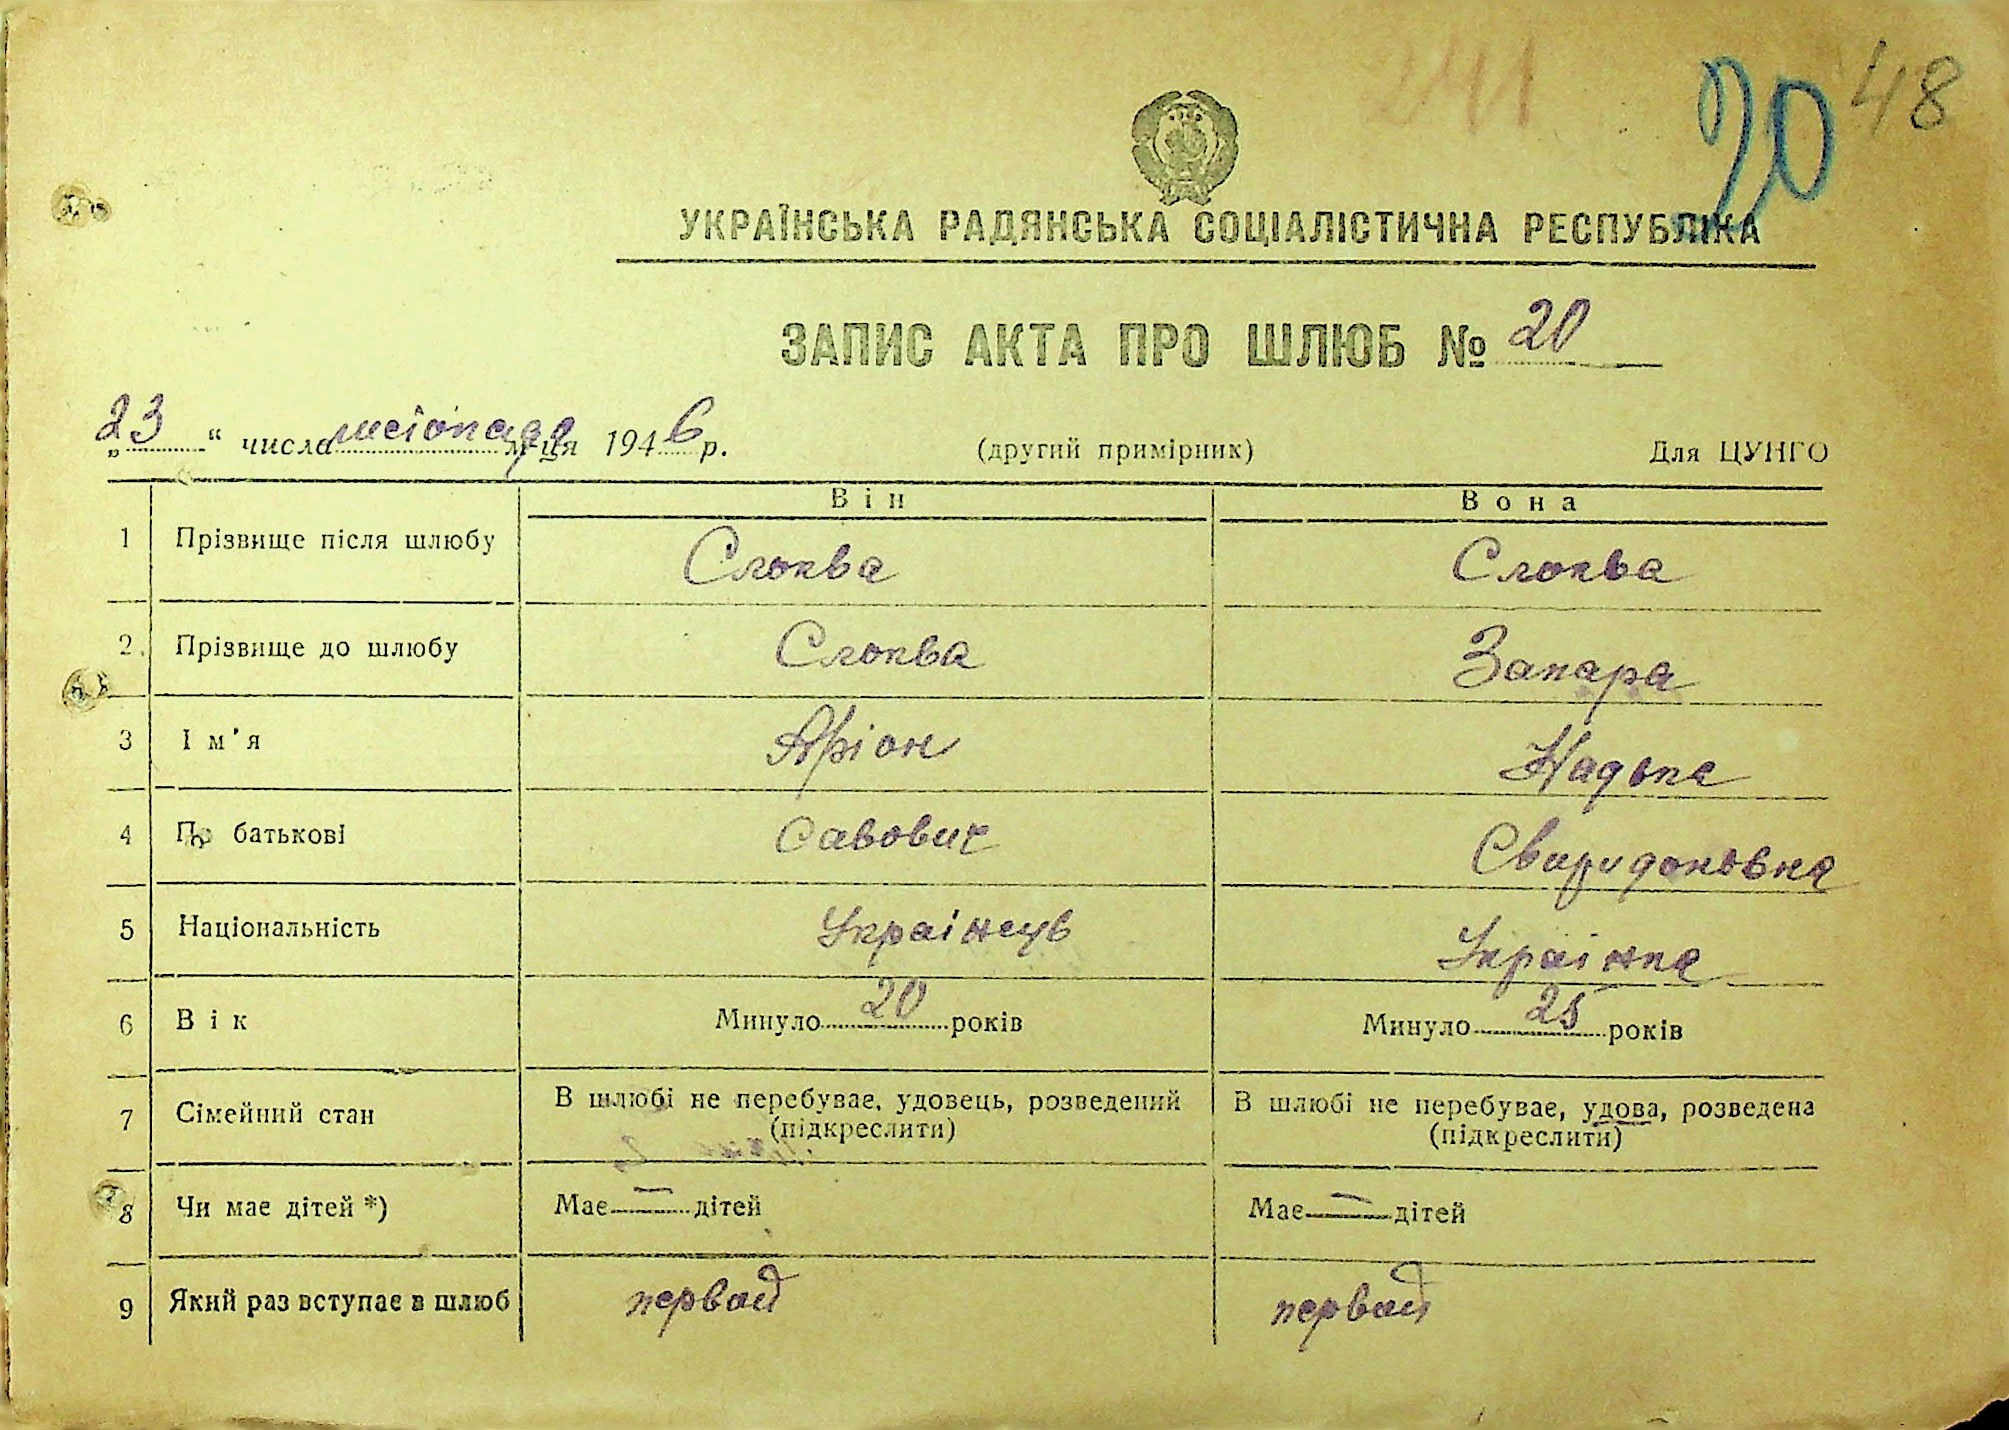 241
20 48
УКРАЇНСЬКА РАДЯНСЬКА СОЦІАЛІСТИЧНА РЕСПУБЛІКА
ЗАПИС АКТА ПРО ШЛЮБ № 20
„23“ числа листопада м-ця 1946 р. (другий примірник) Для ЦУНГО
Він Вона
1 Прізвище після шлюбу Слюква Слюква
2. Прізвище до шлюбу Слюква Запара
3 Ім'я Аріон Надька
4 По батькові Савович Свиридоновна
5 Національність Українець Українка
6 Вік Минуло 20 років Минуло 25 років
7 Сімейний стан В шлюбі не перебуває, удовець, розведений В шлюбі не перебуває, удова, розведена
(підкреслити) (підкреслити)
8 Чи має дітей *) Має — дітей Має — дітей
9 Який раз вступає в шлюб первай первай